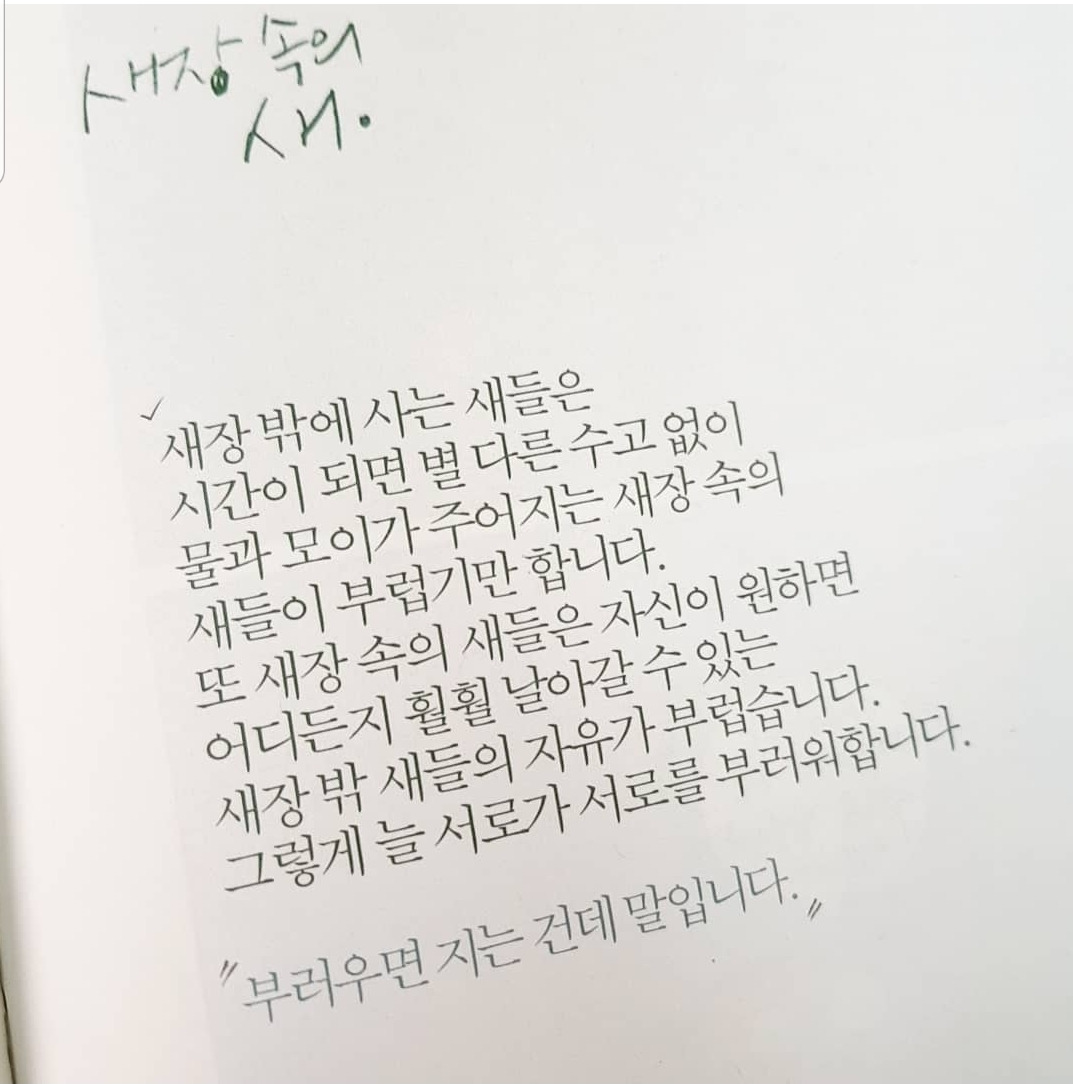 새장 속의
새.
새장 밖에 사는 새들은
시간이 되면 별 다른 수고 없이
물과 모이가 주어지는 새장 속의
새들이 부럽기만 합니다.
또 새장 속의 새들은 자신이 원하면
어디든지 훨훨 날아갈 수 있는
새장 밖 새들의 자유가 부럽습니다.
그렇게 늘 서로가 서로를 부러워합니다.
"부러우면 지는 건데 말입니다."